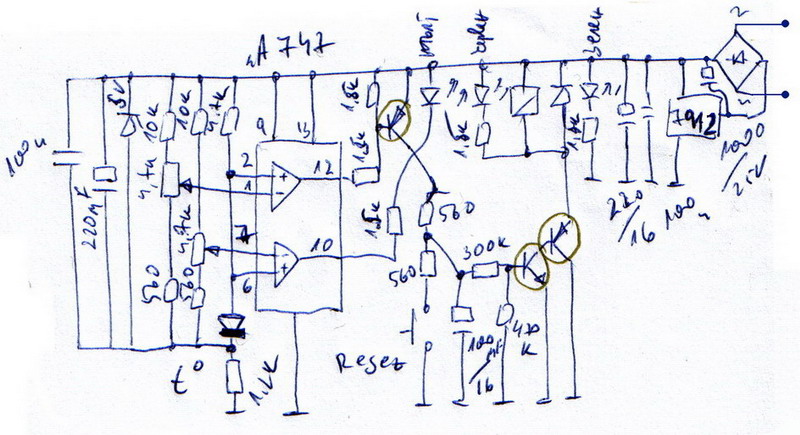 μA 747
жолт
червен
зелен
2
9
13
5V
10k
10k
4,7k
1,8k
100n
220μF
4,7k
2
1
12
1,8k
4,7k
7
6
10
1,8k
560
560
560
560
300k
470
k
100
μF
16
Reset
t°
1,2k
1,8k
1,8k
220
/16
100n
7912
1000
/25V